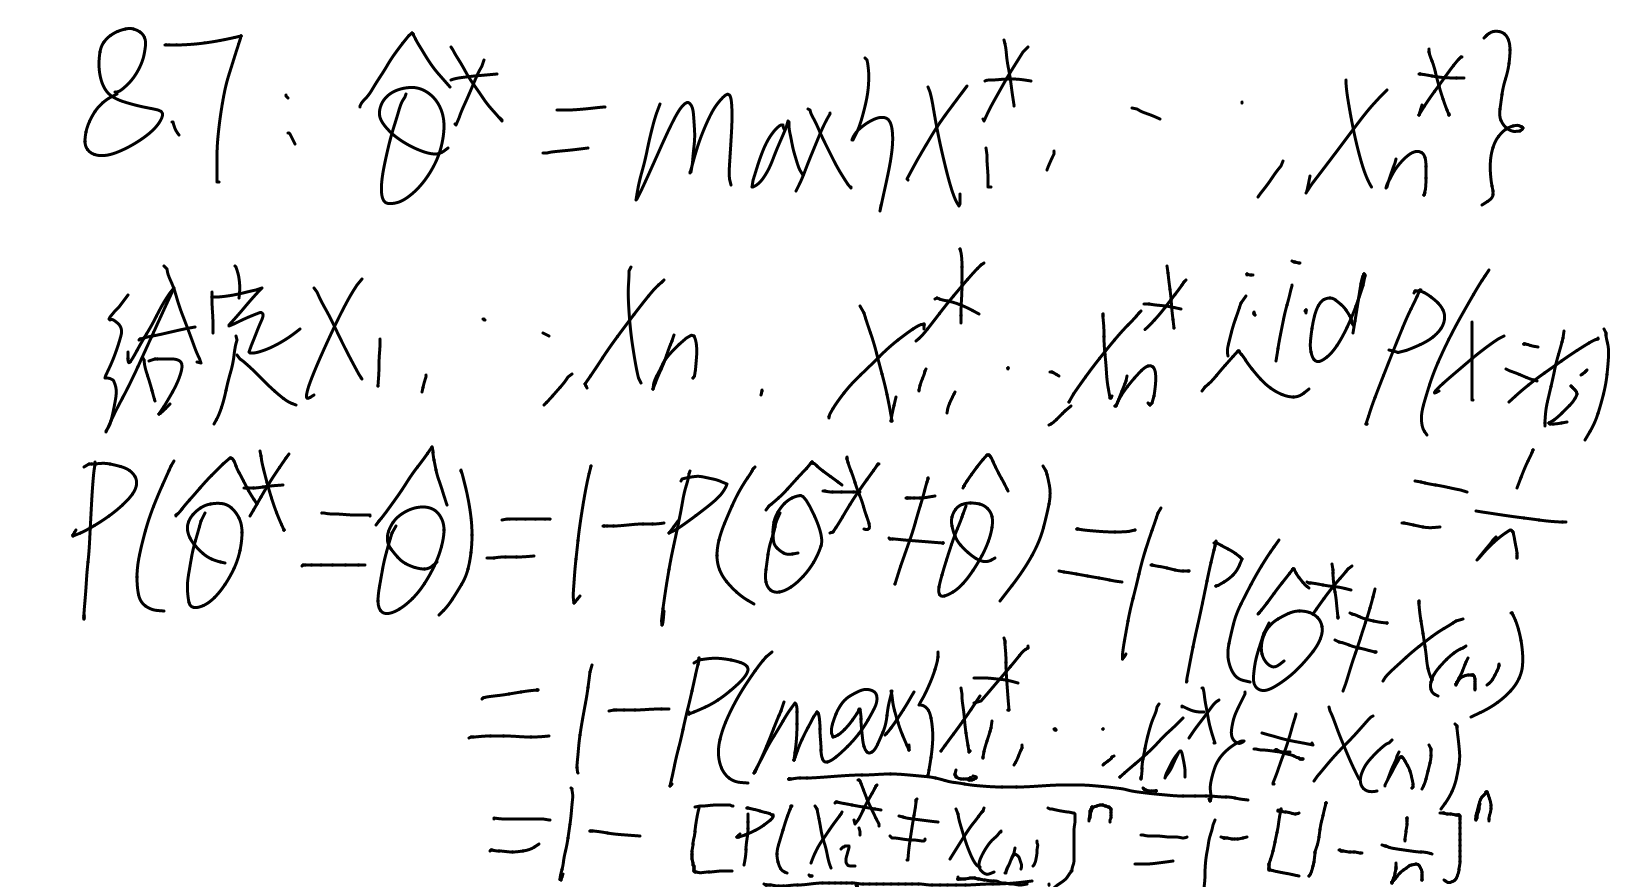 8.7: θ̂* = max{X₁*, ..., Xₙ*}
给定X₁, ..., Xₙ. X₁*, ..., Xₙ* iid P(X=Xᵢ)
= 1/n
P(θ̂* = θ̂) = 1 - P(θ̂* ≠ θ̂) = 1 - P(θ̂* ≠ X₍ₙ₎)
= 1 - P(max{X₁*, ..., Xₙ*} ≠ X₍ₙ₎)
= 1 - [P(Xᵢ* ≠ X₍ₙ₎)]ⁿ = 1 - [1 - 1/n]ⁿ